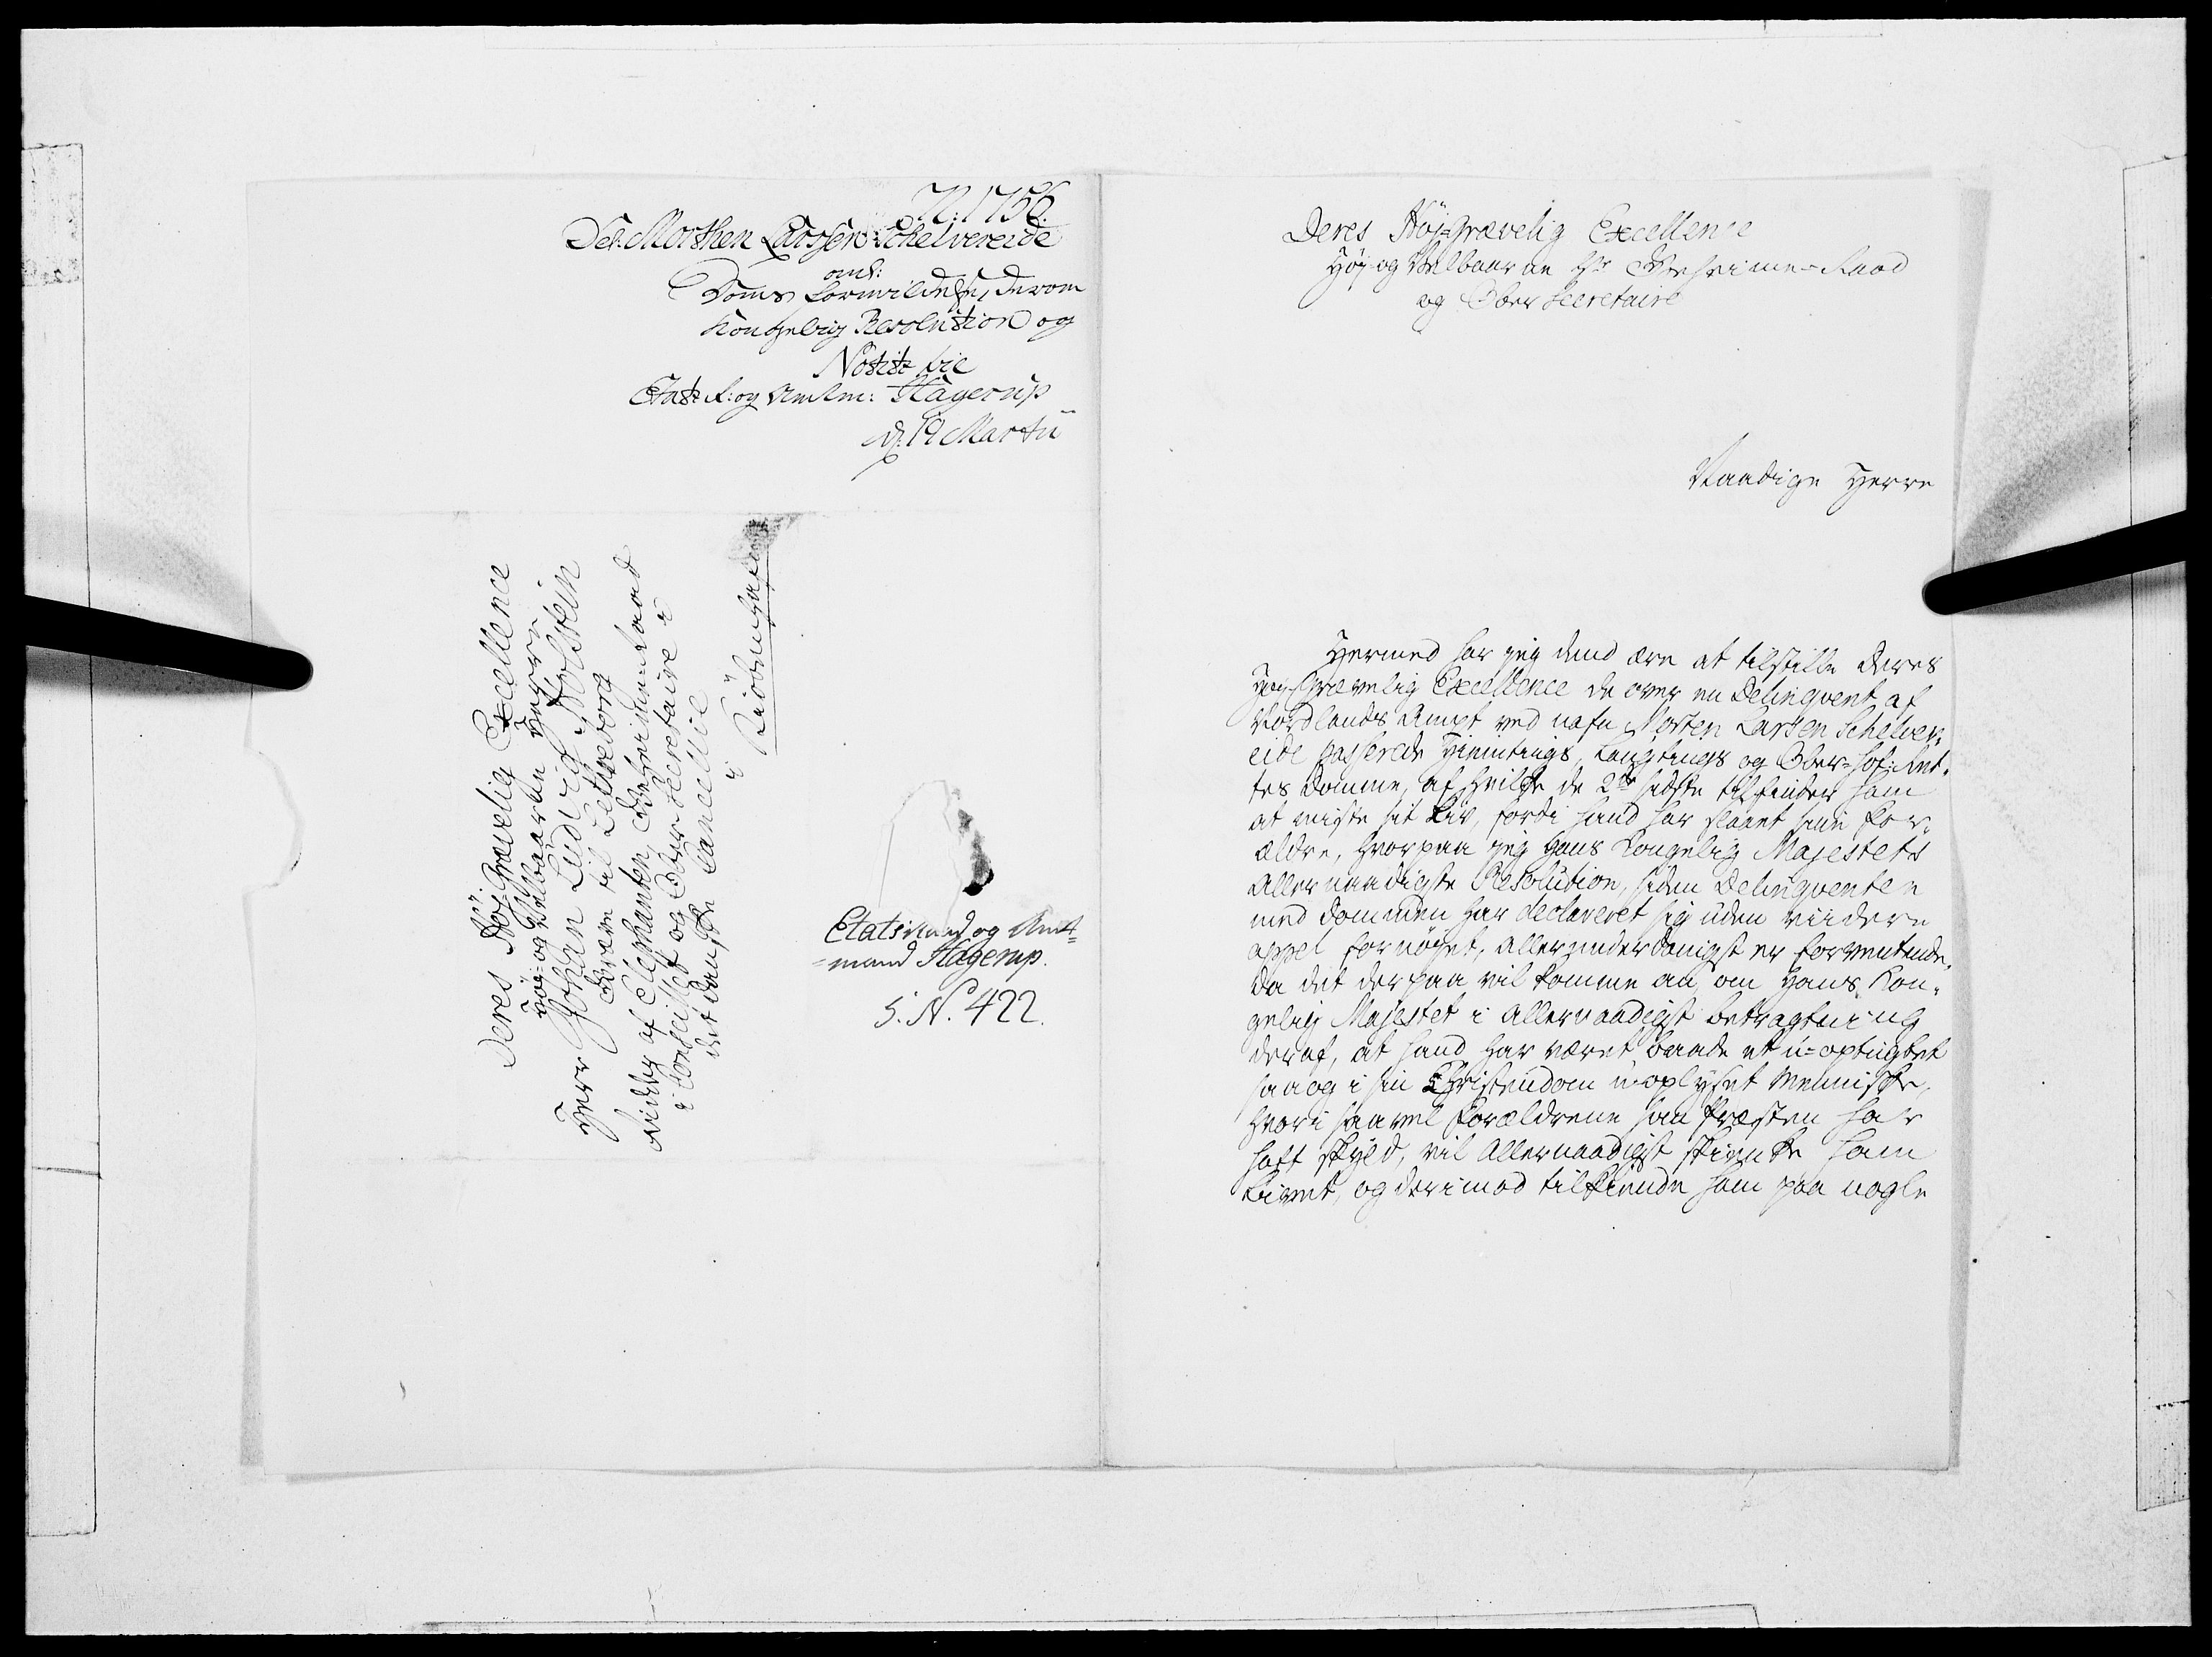 N: 1756.
Del: Morthen Larssen Schelvereide
ank:
Doms formildelse, derom
Kongelig Resolution og
Notist til
Etats R: og Amtm: Hagerup
d. 19 Martii
Deres Høj-Grævelig Excellence
Høj- og Velbaarne Herre
Herr Johan Ludvig Holstein
Greve til Lethraborg
Ridder af Elephanten, Geheime-Raad
i Conseillet og Ober-Secretaire i
det danske Cancellie
i
Kiöbenhafn
Etatsraad og Amt-
-mand Hagerup.
S. N. 422.
Deres Høj-Grævelig Excellence
Høj- og Velbaarne Hr Geheime-Raad
og Ober Secretaire
Naadige Herre
Hermed har jeg dend ære at tilstille Deres
Høj-Grævelig Excellence de over en Delinqvent af
Nordlands Ampt ved nafn Morten Larsen Schelver-
eide passerede Hiemtings, Laugtings og Ober-Hof-Ret-
tes Domme, af hvilke de 2de sidste tilfinder ham
at miste sit Liv, fordi hand har slaaet sine For-
ældre, hvorpaa jeg Hans Kongelig Majestets
Allernaadigste Resolution, siden Delinqventen
med Dommen har declareret sig uden viidere
appel fornøyet, allerunderdanigst er forventende,
da det derpaa vil komme an, om Hans Kon-
gelig Majestet i Allernaadigst betragtning
deraf, at hand har været baade et u-optugtet
saa og i sin Christendom u-oplyset Menniske,
hvori saavel Forældrene som Præsten har
haft skyld, vil Allernaadigst skienke ham
Livet, og derimod tilkiende ham paa nogle